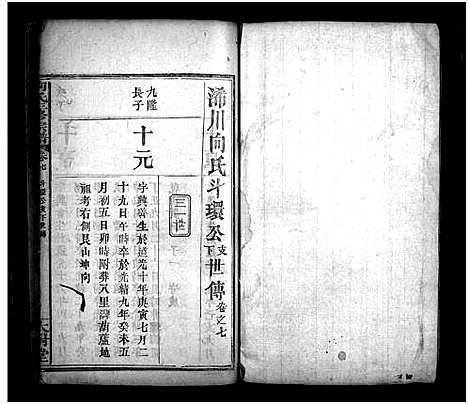 浠川向氏斗環公支下世傳卷之七
三一世
九隆長子
十元
字興善生於道光十年庚寅七月二
十九日午時卒於光緒九年癸未五
月初五日卯時葬八里灣葫蘆地
祖考右側艮山坤向